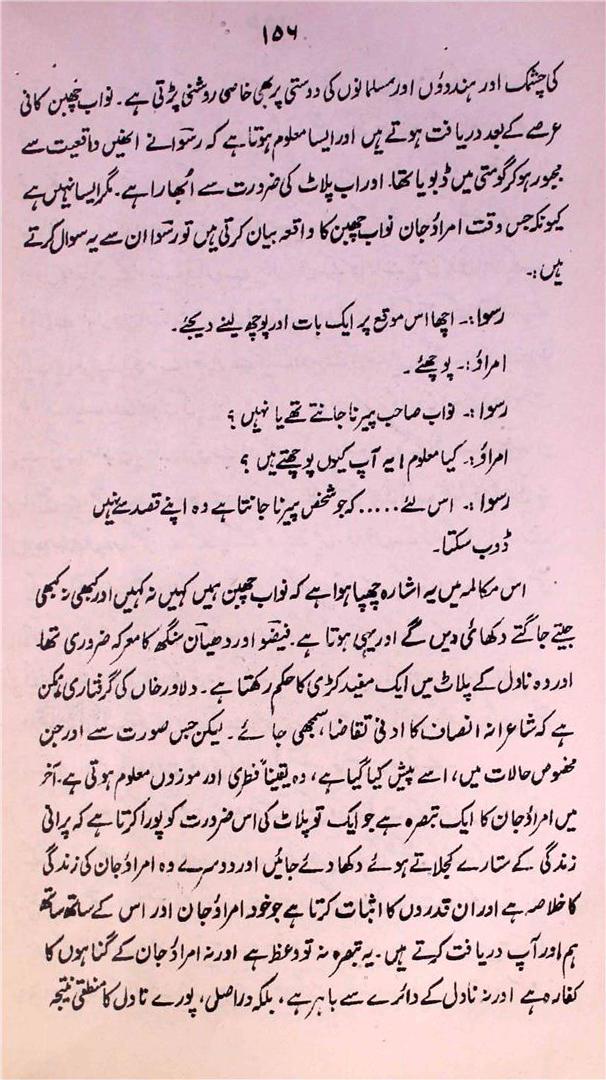 ۱۵۶
کی چشمک اور ہندوؤں اور مسلمانوں کی دوستی پر بھی خاصی روشنی پڑتی ہے۔ نواب چھبن کافی
عرصے کے بعد دریافت ہوتے ہیں اور ایسا معلوم ہوتا ہے کہ رسوا نے انھیں واقعیت سے
مجبور ہو کر گومتی میں ڈبو دیا تھا۔ اور اب پلاٹ کی ضرورت سے اُبھارا ہے۔ مگر ایسا نہیں ہے
کیونکہ جس وقت امراؤ جان نواب چھبن کا واقعہ بیان کرتی ہیں تو رسوا ان سے یہ سوال کرتے
ہیں:۔
رسوا:۔ اچھا اس موقع پر ایک بات اور پوچھ لینے دیجئے۔
امراؤ:۔ پوچھئے ۔
رسوا:۔ نواب صاحب پیرنا جانتے تھے یا نہیں ؟
امراؤ:۔ کیا معلوم! یہ آپ کیوں پوچھتے ہیں ؟
رسوا:۔ اس لئے ..... کہ جو شخص پیرنا جانتا ہے وہ اپنے قصد سے نہیں
ڈوب سکتا۔
اس مکالمہ میں یہ اشارہ چھپا ہوا ہے کہ نواب چھبن ہمیں کہیں نہ کہیں اور کبھی نہ کبھی
جیتے جاگتے دکھائی دیں گے اور یہی ہوتا ہے۔ فیضو اور دھیان سنگھ کا معرکہ ضروری تھا
اور وہ ناول کے پلاٹ میں ایک مفید کڑی کا حکم رکھتا ہے۔ دلاور خاں کی گرفتاری ممکن
ہے کہ شاعرانہ انصاف کا ادنیٰ تقاضا، سمجھی جائے۔ لیکن جس صورت سے اور جن
مخصوص حالات میں، اسے پیش کیا گیا ہے، وہ یقیناً فطری اور موزوں معلوم ہوتی ہے۔ آخر
میں امراؤ جان کا ایک تبصرہ ہے جو ایک تو پلاٹ کی اس ضرورت کو پورا کرتا ہے کہ پرانی
زندگی کے ستارے کجلاتے ہوئے دکھا دئے جائیں اور دوسرے وہ امراؤ جان کی زندگی
کا خلاصہ ہے اور ان قدروں کا اثبات کرتا ہے جو خود امراؤ جان اور اس کے ساتھ ساتھ
ہم اور آپ دریافت کرتے ہیں۔ یہ تبصرہ نہ تو وعظ ہے اور نہ امراؤ جان کے گناہوں کا
کفارہ ہے اور نہ ناول کے دائرے سے باہر ہے، بلکہ دراصل، پورے ناول کا منطقی نتیجہ